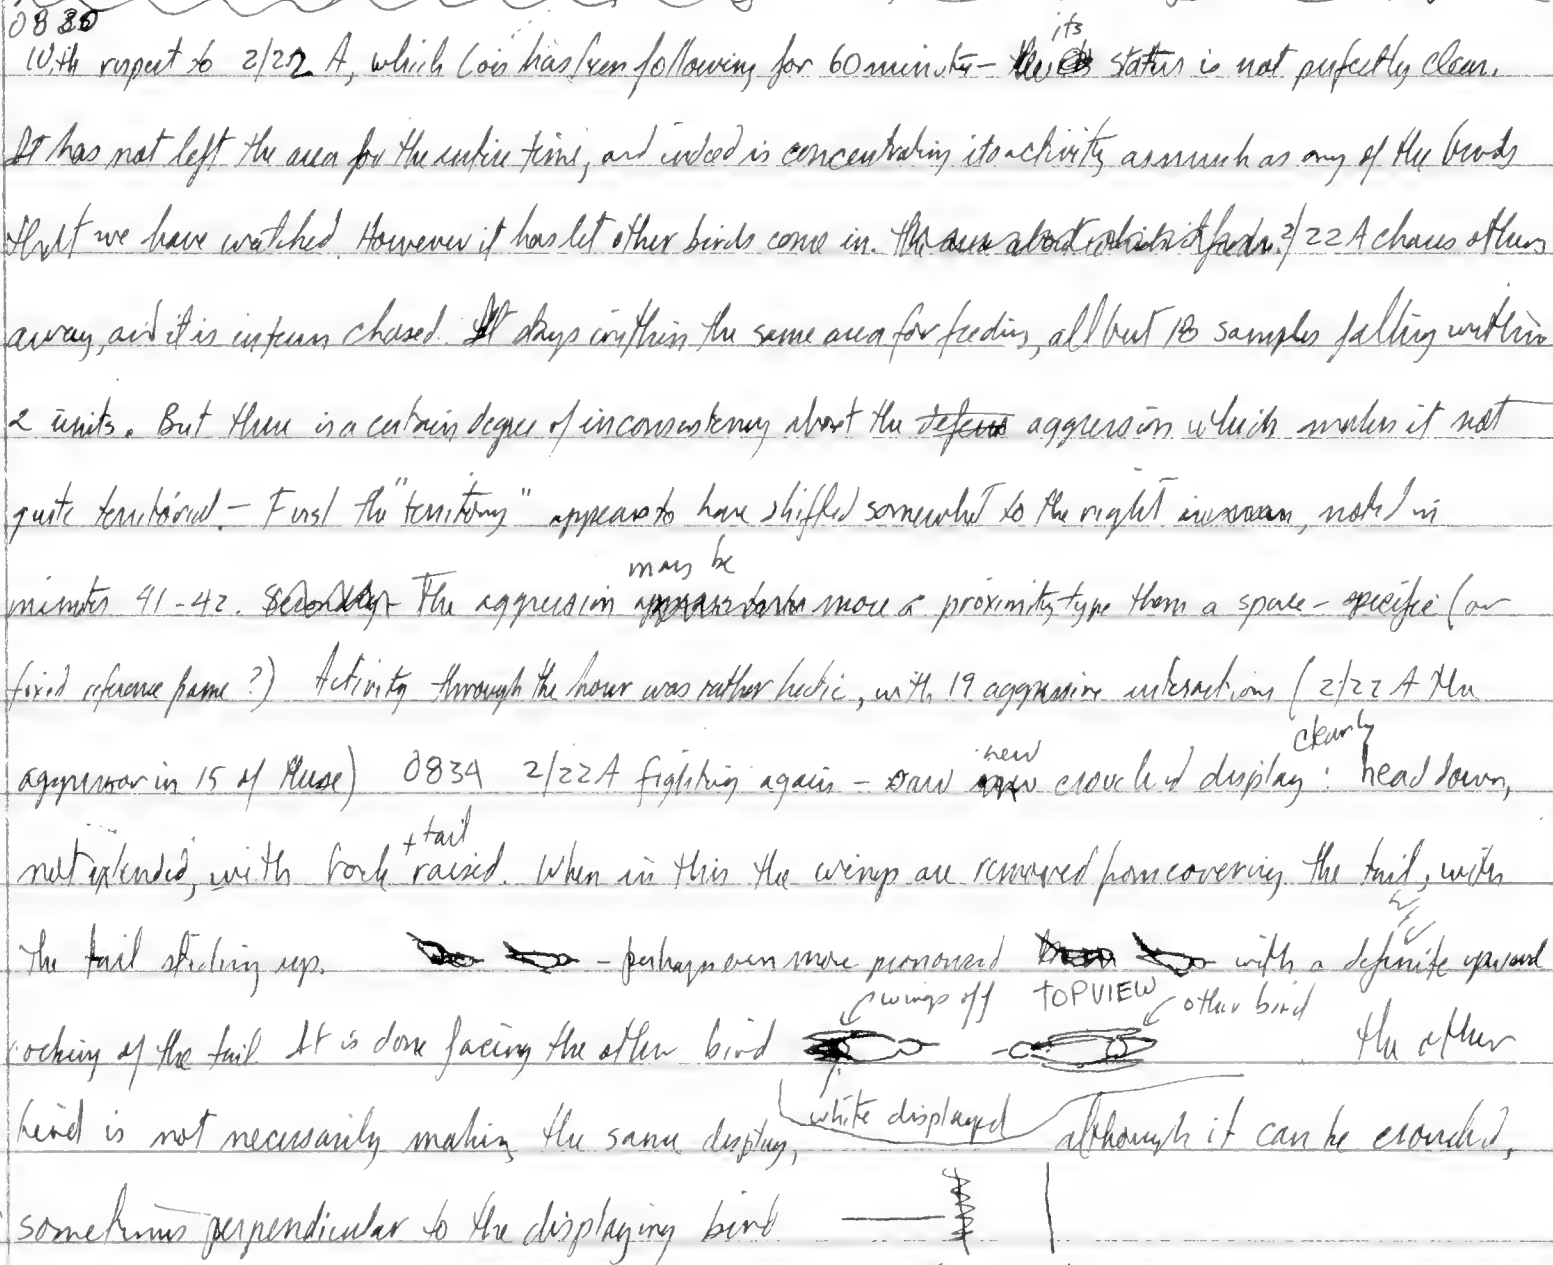 0830
With respect to 2/22 A, which Lois has been following for 60 minutes - its status is not perfectly clear.
It has not left the area for the entire time, and indeed is concentrating its activity as much as any of the birds
that we have watched. However it has let other birds come in. the area about which it feeds. 2/22 A chases others
away, and it is in turn chased. It stays within the same area for feeding, all but 18 samples falling within
2 units. But there is a certain degree of inconsistency about the defense aggression which makes it not
quite territorial. - First the "territory" appears to have shifted somewhat to the right, noted in
minutes 41-42. Secondly The aggression may be more a proximity type than a space-specific (or
fixed reference frame?) Activity through the hour was rather hectic, with 19 aggressive interactions (2/22 A the
aggressor in 15 of these) 0834 2/22A fighting again - saw new crouched display clearly: head down,
not extended, with back + tail raised. When in this the wings are removed from covering the tail, with
the tail sticking up. - perhaps even more pronounced with a definite upward
cocking of the tail. It is done facing the other bird
wings off TOP VIEW other bird
the other
white displayed
bird is not necessarily making the same display, although it can be crouched,
sometimes perpendicular to the displaying bird